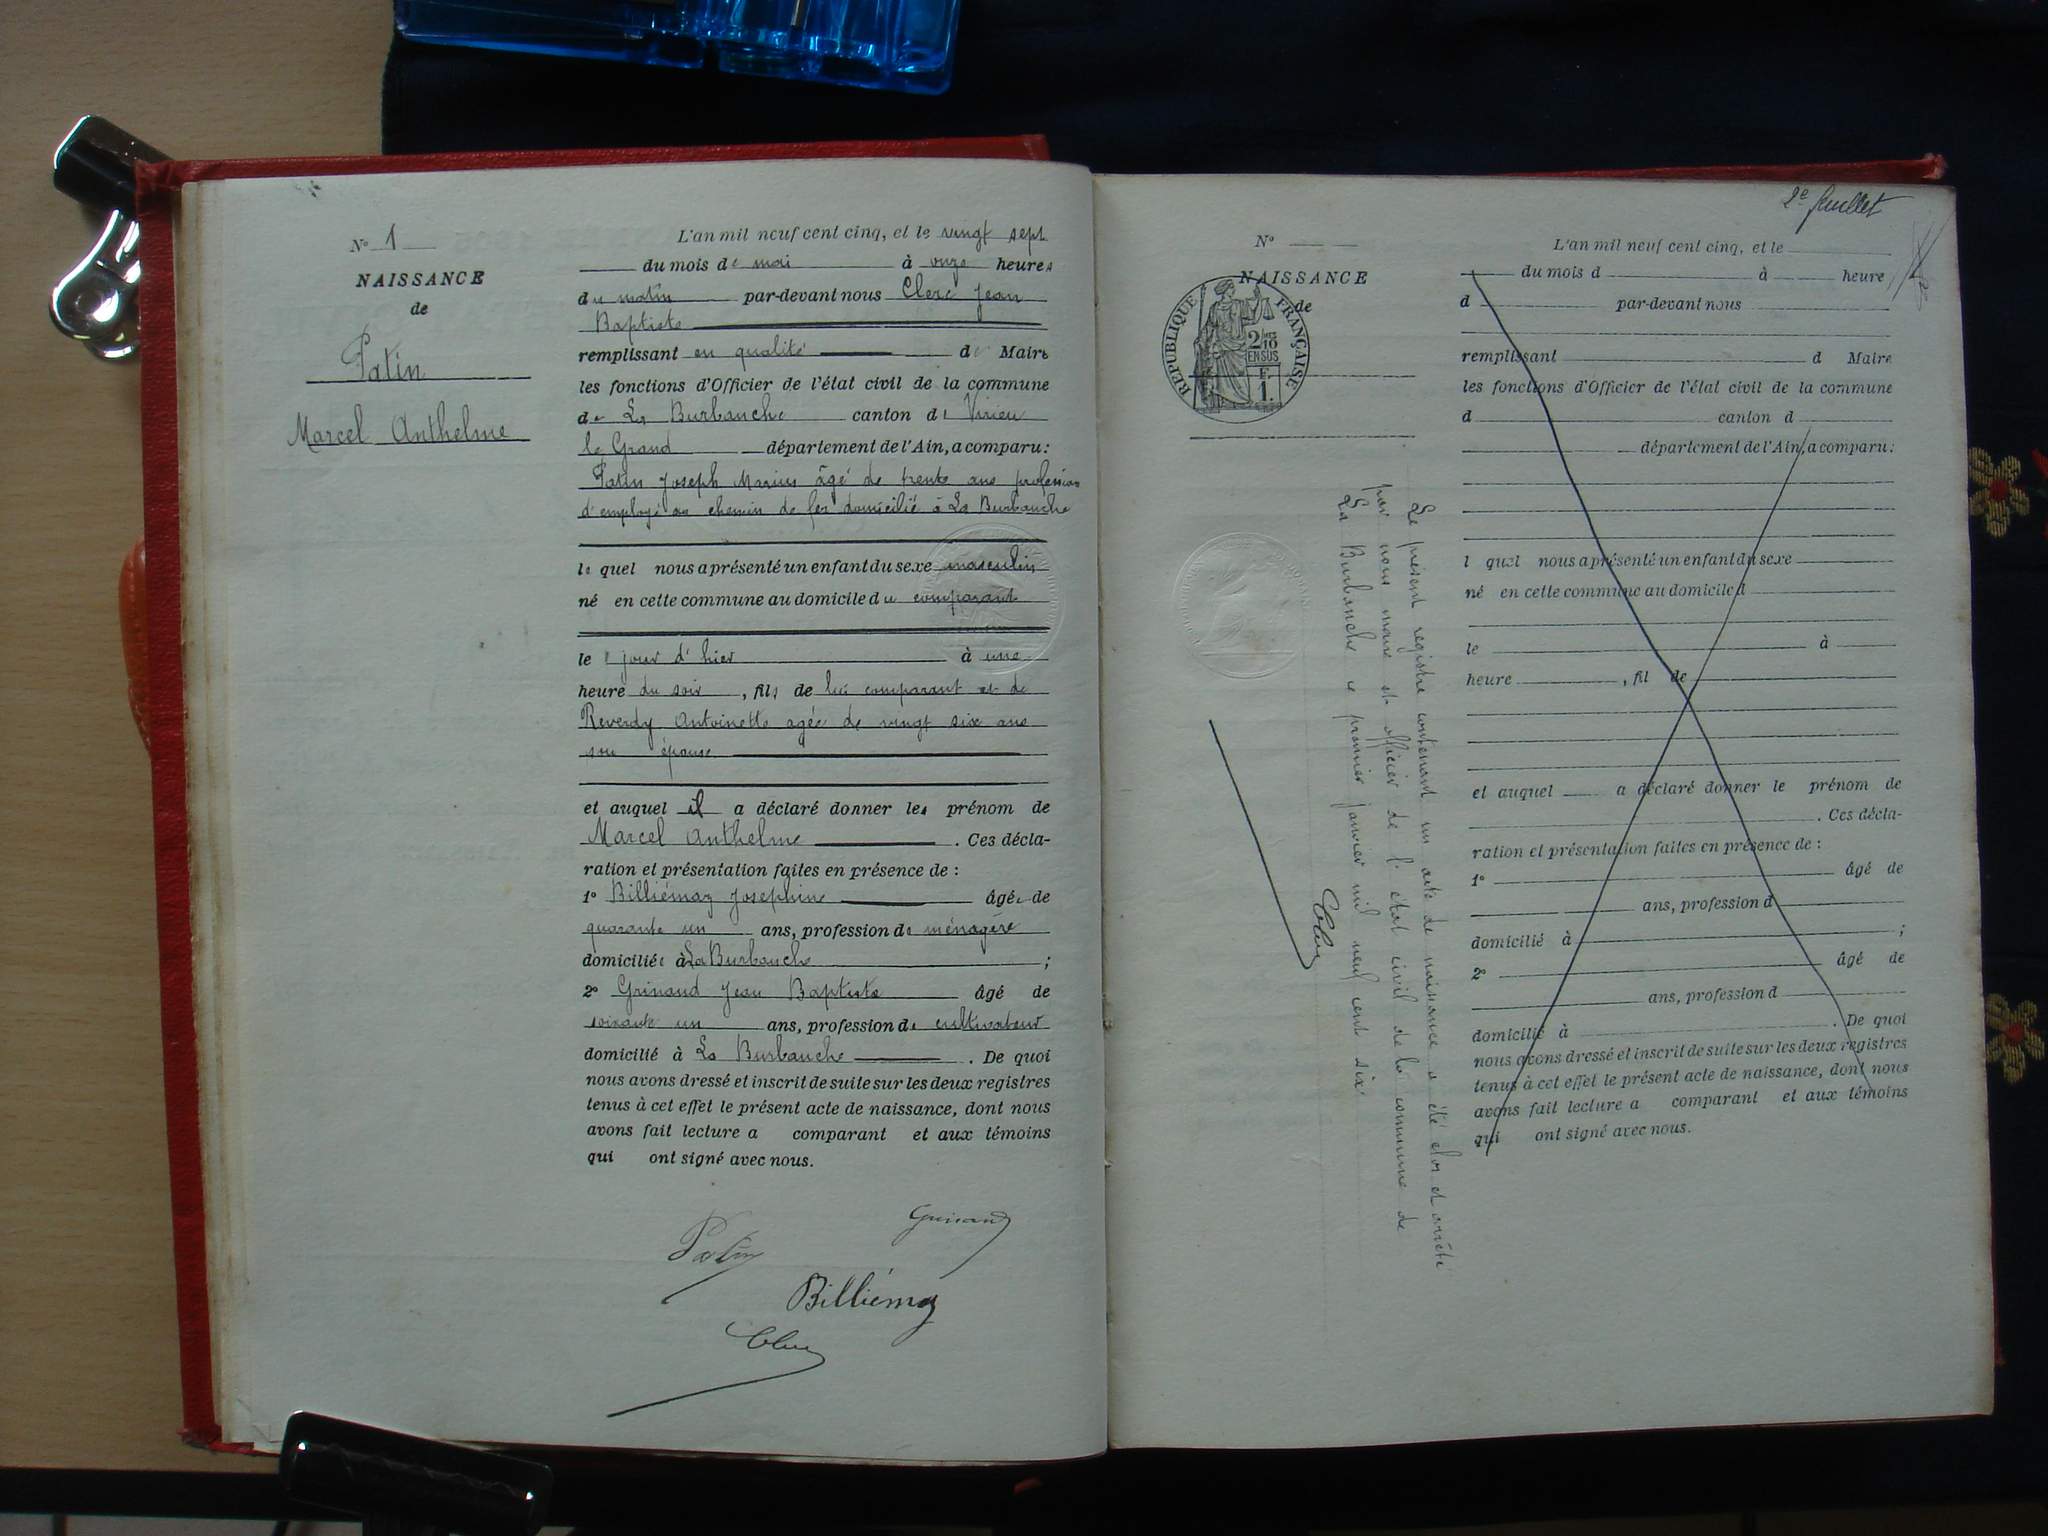 N° 1
NAISSANCE
de
Patin
Marcel Anthelme
L'an mil neuf cent cinq, et le vingt sept
du mois de mai à onze heures
du matin par-devant nous Clerc Jean
Baptiste
remplissant en qualité de Maire
les fonctions d'Officier de l'état civil de la commune
de La Burbanche canton de Virieu
le Grand département de l'Ain, a comparu:
Patin Joseph Marius âgé de trente ans profession
d'employé au chemin de fer domicilié à La Burbanche
le quel nous a présenté un enfant du sexe masculin
né en cette commune au domicile du comparant
le jour d'hier à une
heure du soir, fils de lui comparant et de
Reverdy Antoinette agée de vingt six ans
son épouse
et auquel il a déclaré donner les prénom de
Marcel Anthelme. Ces décla-
ration et présentation faites en présence de:
1° Billiémaz Josephine âgée de
quarante un ans, profession de ménagère
domiciliée à La Burbanche;
2° Grinand Jean Baptiste âgé de
soixante un ans, profession de cultivateur
domicilié à La Burbanche. De quoi
nous avons dressé et inscrit de suite sur les deux registres
tenus à cet effet le présent acte de naissance, dont nous
avons fait lecture a comparant et aux témoins
qui ont signé avec nous.
Grinand
Patin
Billiémaz
Clerc
2e feuillet
N°
NAISSANCE
de
RÉPUBLIQUE FRANÇAISE
2/10
EN SUS
F.
1.
Le présent registre contenant un acte de naissance a été clos et arrêté
par nous maire et officier de l'état civil de la commune de
La Burbanche le premier janvier mil neuf cent six
Clerc
L'an mil neuf cent cinq, et le
du mois d à heure
d par-devant nous
remplissant d Maire
les fonctions d'Officier de l'état civil de la commune
d canton d
département de l'Ain, a comparu:
l quel nous a présenté un enfant du sexe
né en cette commune au domicile d
le à
heure, fil de
et auquel a déclaré donner le prénom de
. Ces décla-
ration et présentation faites en présence de:
1° âgé de
ans, profession d
domicilié à;
2° âgé de
ans, profession d
domicilié à. De quoi
nous avons dressé et inscrit de suite sur les deux registres
tenus à cet effet le présent acte de naissance, dont nous
avons fait lecture a comparant et aux témoins
qui ont signé avec nous.